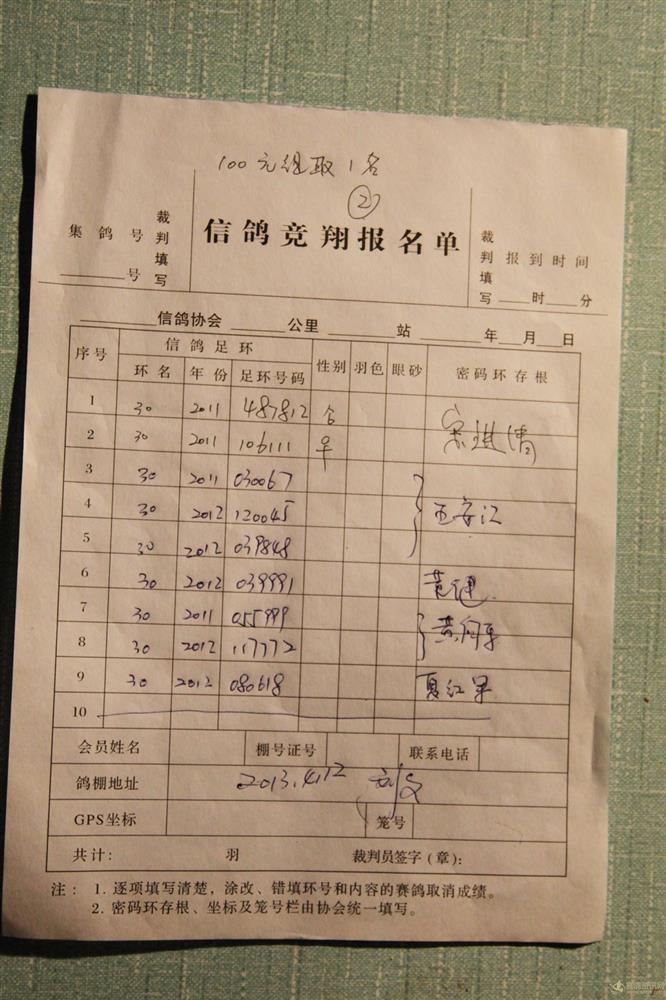 100元组取1名
②
集鸽号
____号
裁判填写
信鸽竞翔报名单
裁判填写
报到时间
____时____分
____信鸽协会____公里____站____年__月__日
序号 信鸽足环 性别 羽色 眼砂 密码环存根
环名 年份 足环号码
1 30 2011 487812
2 30 2011 106111
3 30 2011 030067
4 30 2012 120045
5 30 2012 039848
6 30 2012 039991
7 30 2011 055999 黄向东
8 30 2012 117772
9 30 2012 080618
10
会员姓名 棚号证号 联系电话
鸽棚地址 2013.4.12
GPS坐标 笼号
共计: 羽 裁判员签字(章):
注: 1. 逐项填写清楚,涂改、错填环号和内容的赛鸽取消成绩。
2. 密码环存根、坐标及笼号栏由协会统一填写。